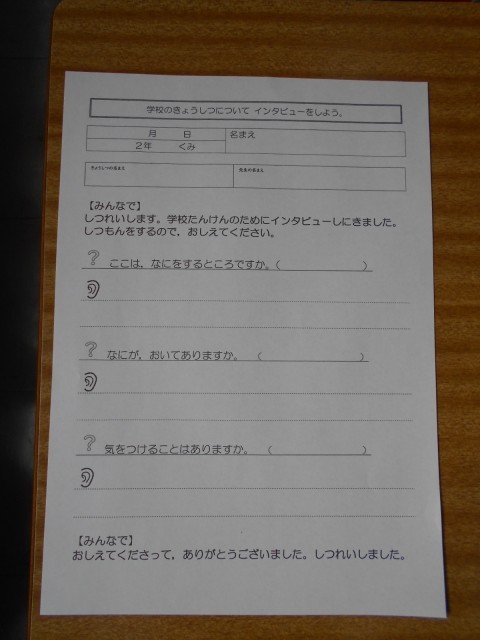 学校のきょうしつについて インタビューをしよう。
月 日 名まえ
2年 くみ
きょうしつの名まえ 先生の名まえ
【みんなで】
しつれいします。学校たんけんのためにインタビューしにきました。
しつもんをするので、おしえてください。
? ここは、なにをするところですか。( )
? なにが、おいてありますか。 ( )
? 気をつけることはありますか。 ( )
【みんなで】
おしえてくださって、ありがとうございました。しつれいしました。